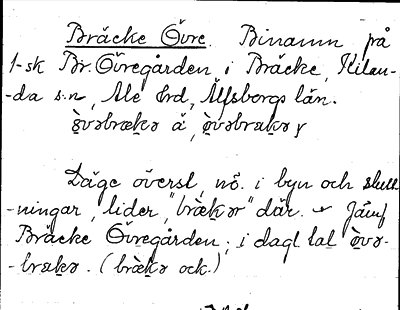 Bräcke Övre. Binamn på
1-sk Br. Övregården i Bräcke, Kilan-
-da s:n, Ale hrd, Älfsborgs län.
ö̀vəbrækə à, ö̀vəbrækə y
Läge överst, nö. i byn och slutt-
-ningar, lider, "bræ̀kər" där. Jämf
Bräcke Övregården; i dagl. tal ö̀və-
-brækə. (bræ̀kə ock.)